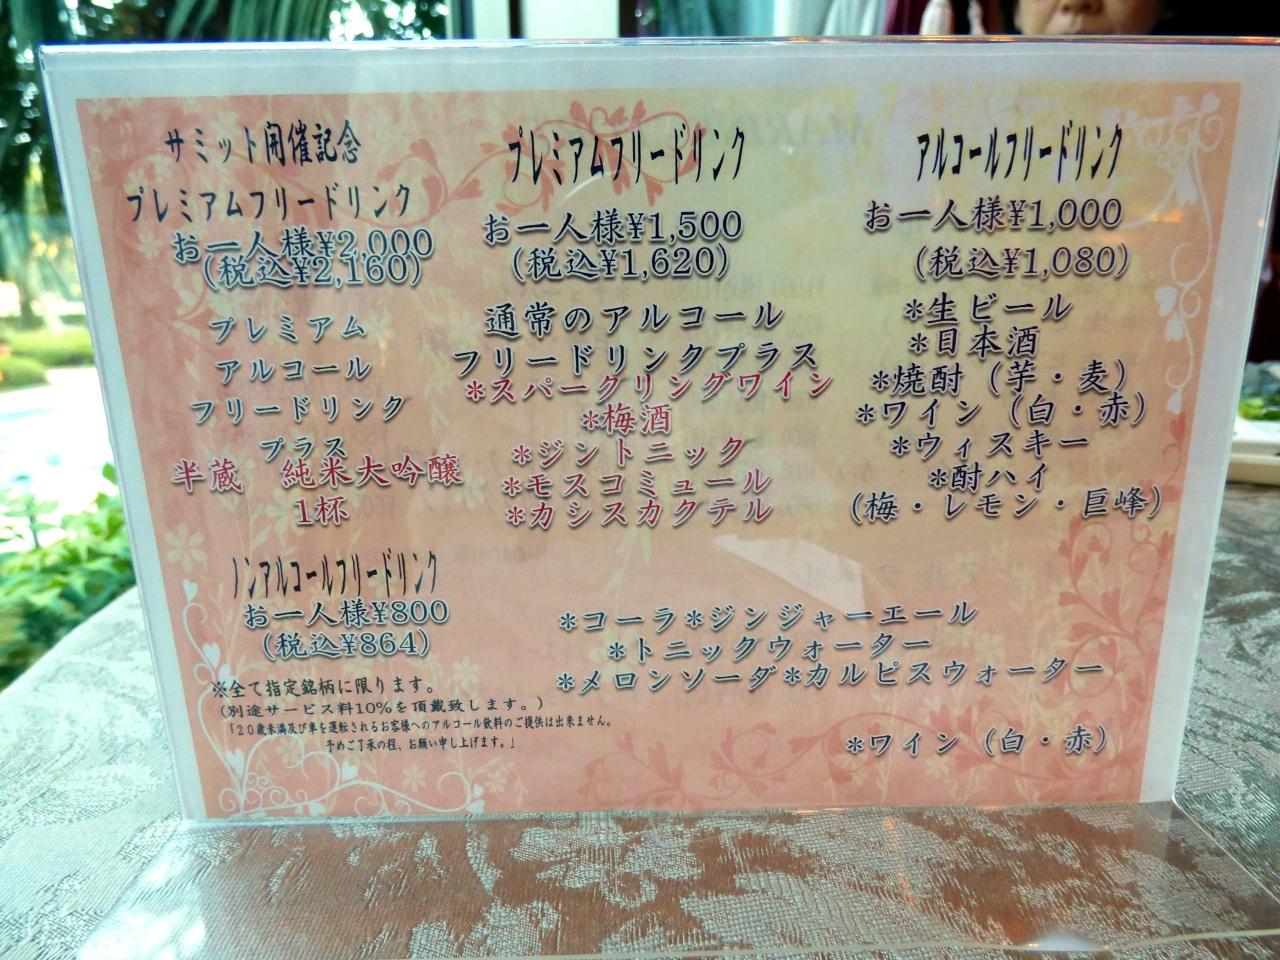 サミット開催記念
プレミアムフリードリンク
お一人様¥2,000
(税込¥2,160)
プレミアム
アルコール
フリードリンク
プラス
半蔵　純米大吟醸
1杯
プレミアムフリードリンク
お一人様¥1,500
(税込¥1,620)
通常のアルコール
フリードリンクプラス
*スパークリングワイン
*梅酒
*ジントニック
*モスコミュール
*カシスカクテル
アルコールフリードリンク
お一人様¥1,000
(税込¥1,080)
*生ビール
*日本酒
*焼酎（芋・麦）
*ワイン（白・赤）
*ウィスキー
*酎ハイ
（梅・レモン・巨峰）
ノンアルコールフリードリンク
お一人様¥800
(税込¥864)
*コーラ*ジンジャーエール
*トニックウォーター
*メロンソーダ*カルピスウォーター
*ワイン（白・赤）
※全て指定銘柄に限ります。
（別途サービス料10%を頂戴致します。）
「20歳未満及び車を運転されるお客様へのアルコール飲料のご提供は出来ません。
予めご了承の程、お願い申し上げます。」